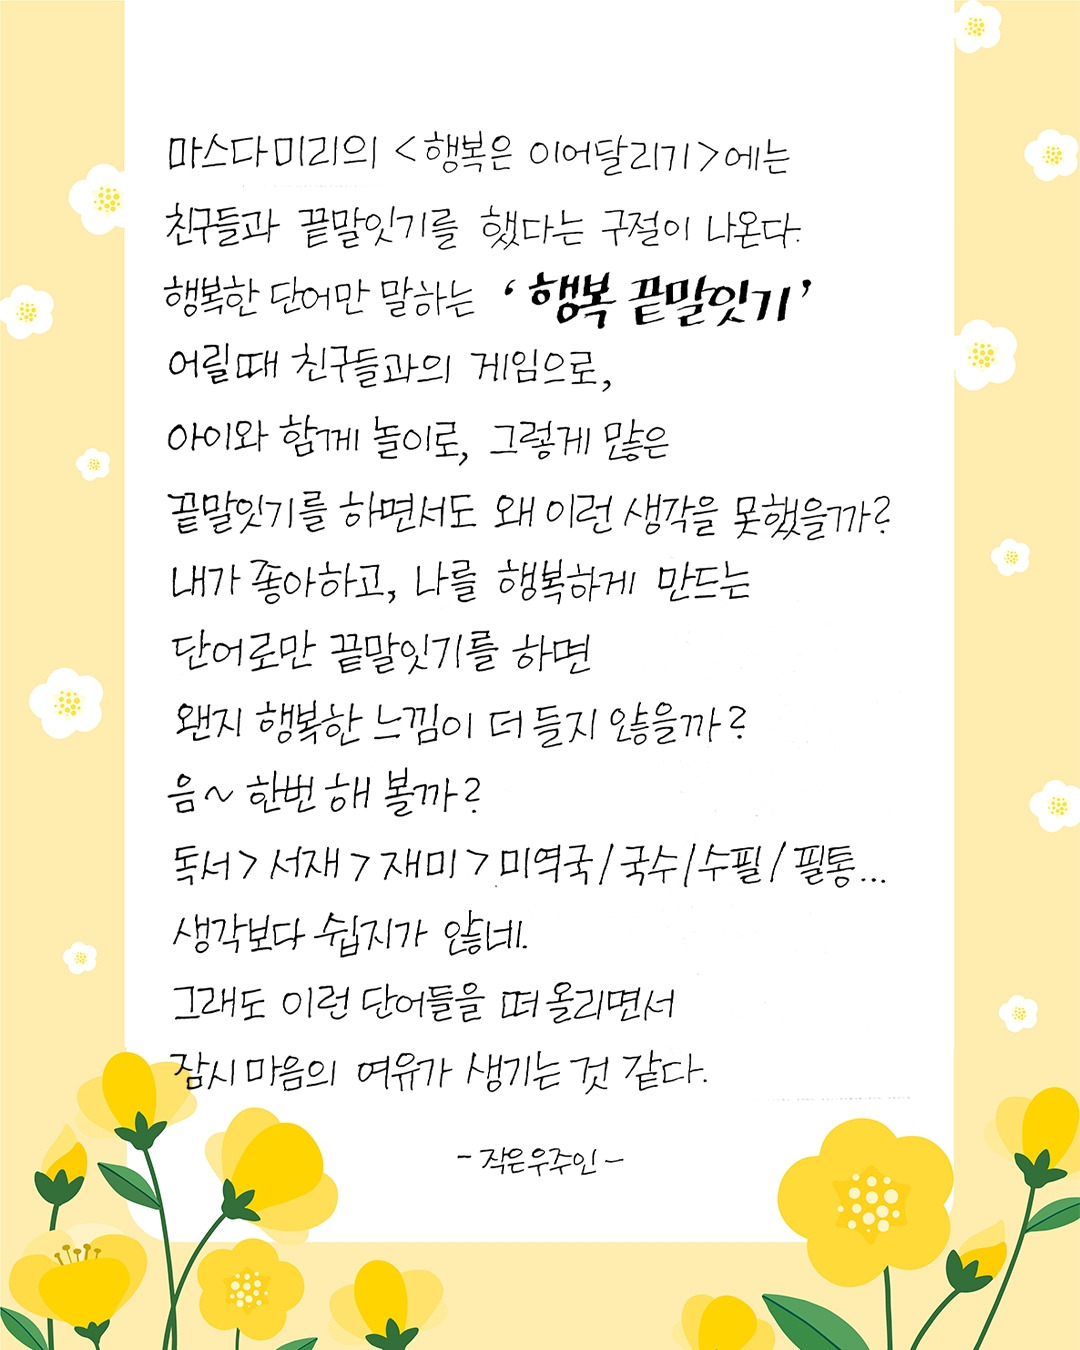 마스다 미리의 <행복은 이어달리기>에는
친구들과 끝말잇기를 했다는 구절이 나온다.
행복한 단어만 말하는 '행복 끝말잇기'
어릴때 친구들과의 게임으로,
아이와 함께 놀이로, 그렇게 많은
끝말잇기를 하면서도 왜 이런 생각을 못했을까?
내가 좋아하고, 나를 행복하게 만드는
단어로만 끝말잇기를 하면
왠지 행복한 느낌이 더 들지 않을까?
음~ 한번 해 볼까?
독서 > 서재 > 재미 > 미역국 / 국수 / 수필 / 필통...
생각보다 쉽지가 않네.
그래도 이런 단어들을 떠올리면서
잠시 마음의 여유가 생기는 것 같다.
- 작은우주인 -